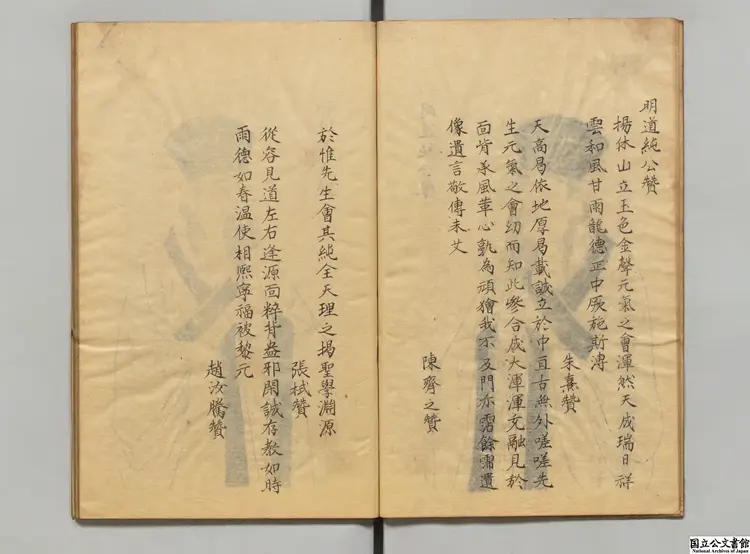 明道純公贊
揚休山立玉色金聲元氣之會渾然天成瑞日祥
雲和風甘雨龍德正中厥施斯溥
朱熹贊
天高易依地厚易載誠立於中亘古無外嗟嗟先
生元氣之會幼而知此參合成大渾渾充融見於
面背承風革心孰為頑獪我不及門亦霑餘霈遺
像遺言敬傳未艾
陳齊之贊
於惟先生會其純全天理之揭聖學淵源
張栻贊
從容見道左右逢源面粹背盎邪閑誠存教如時
雨德如春溫使相熙寧福被黎元
趙汝騰贊
国立公文書館
National Archives of Japan